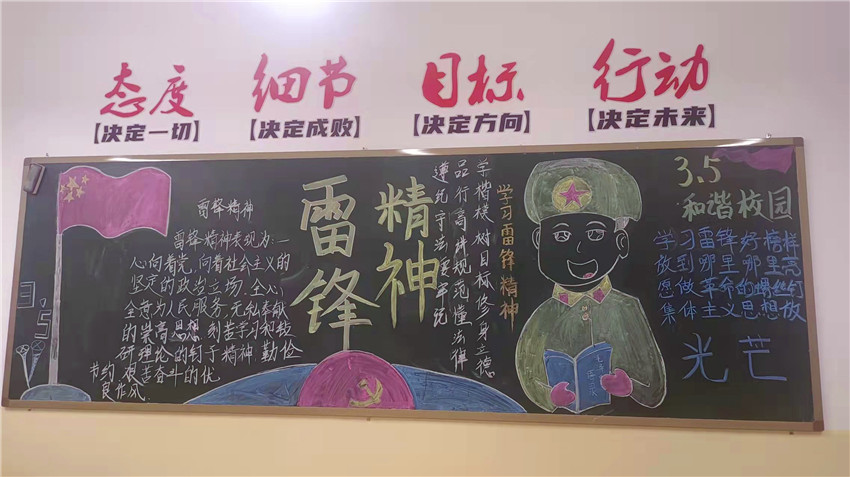 态度 细节 目标 行动
【决定一切】 【决定成败】 【决定方向】 【决定未来】
3.5
雷锋精神
雷锋精神表现为:一
心向着党,向着社会主义的
坚定的政治立场,全心
全意为人民服务,无私奉献
的崇高思想 刻苦学习和钻
研理论的钉子精神 勤俭
节约 艰苦奋斗的优
良作风.
雷锋
精神
学楷模树目标修身立德
品行高讲规范懂法律
遵纪守法要牢记
学习雷锋精神
3.5
和谐校园
学习雷锋好榜样
放到哪里哪里亮
愿做革命的螺丝钉
集体主义思想放
光芒